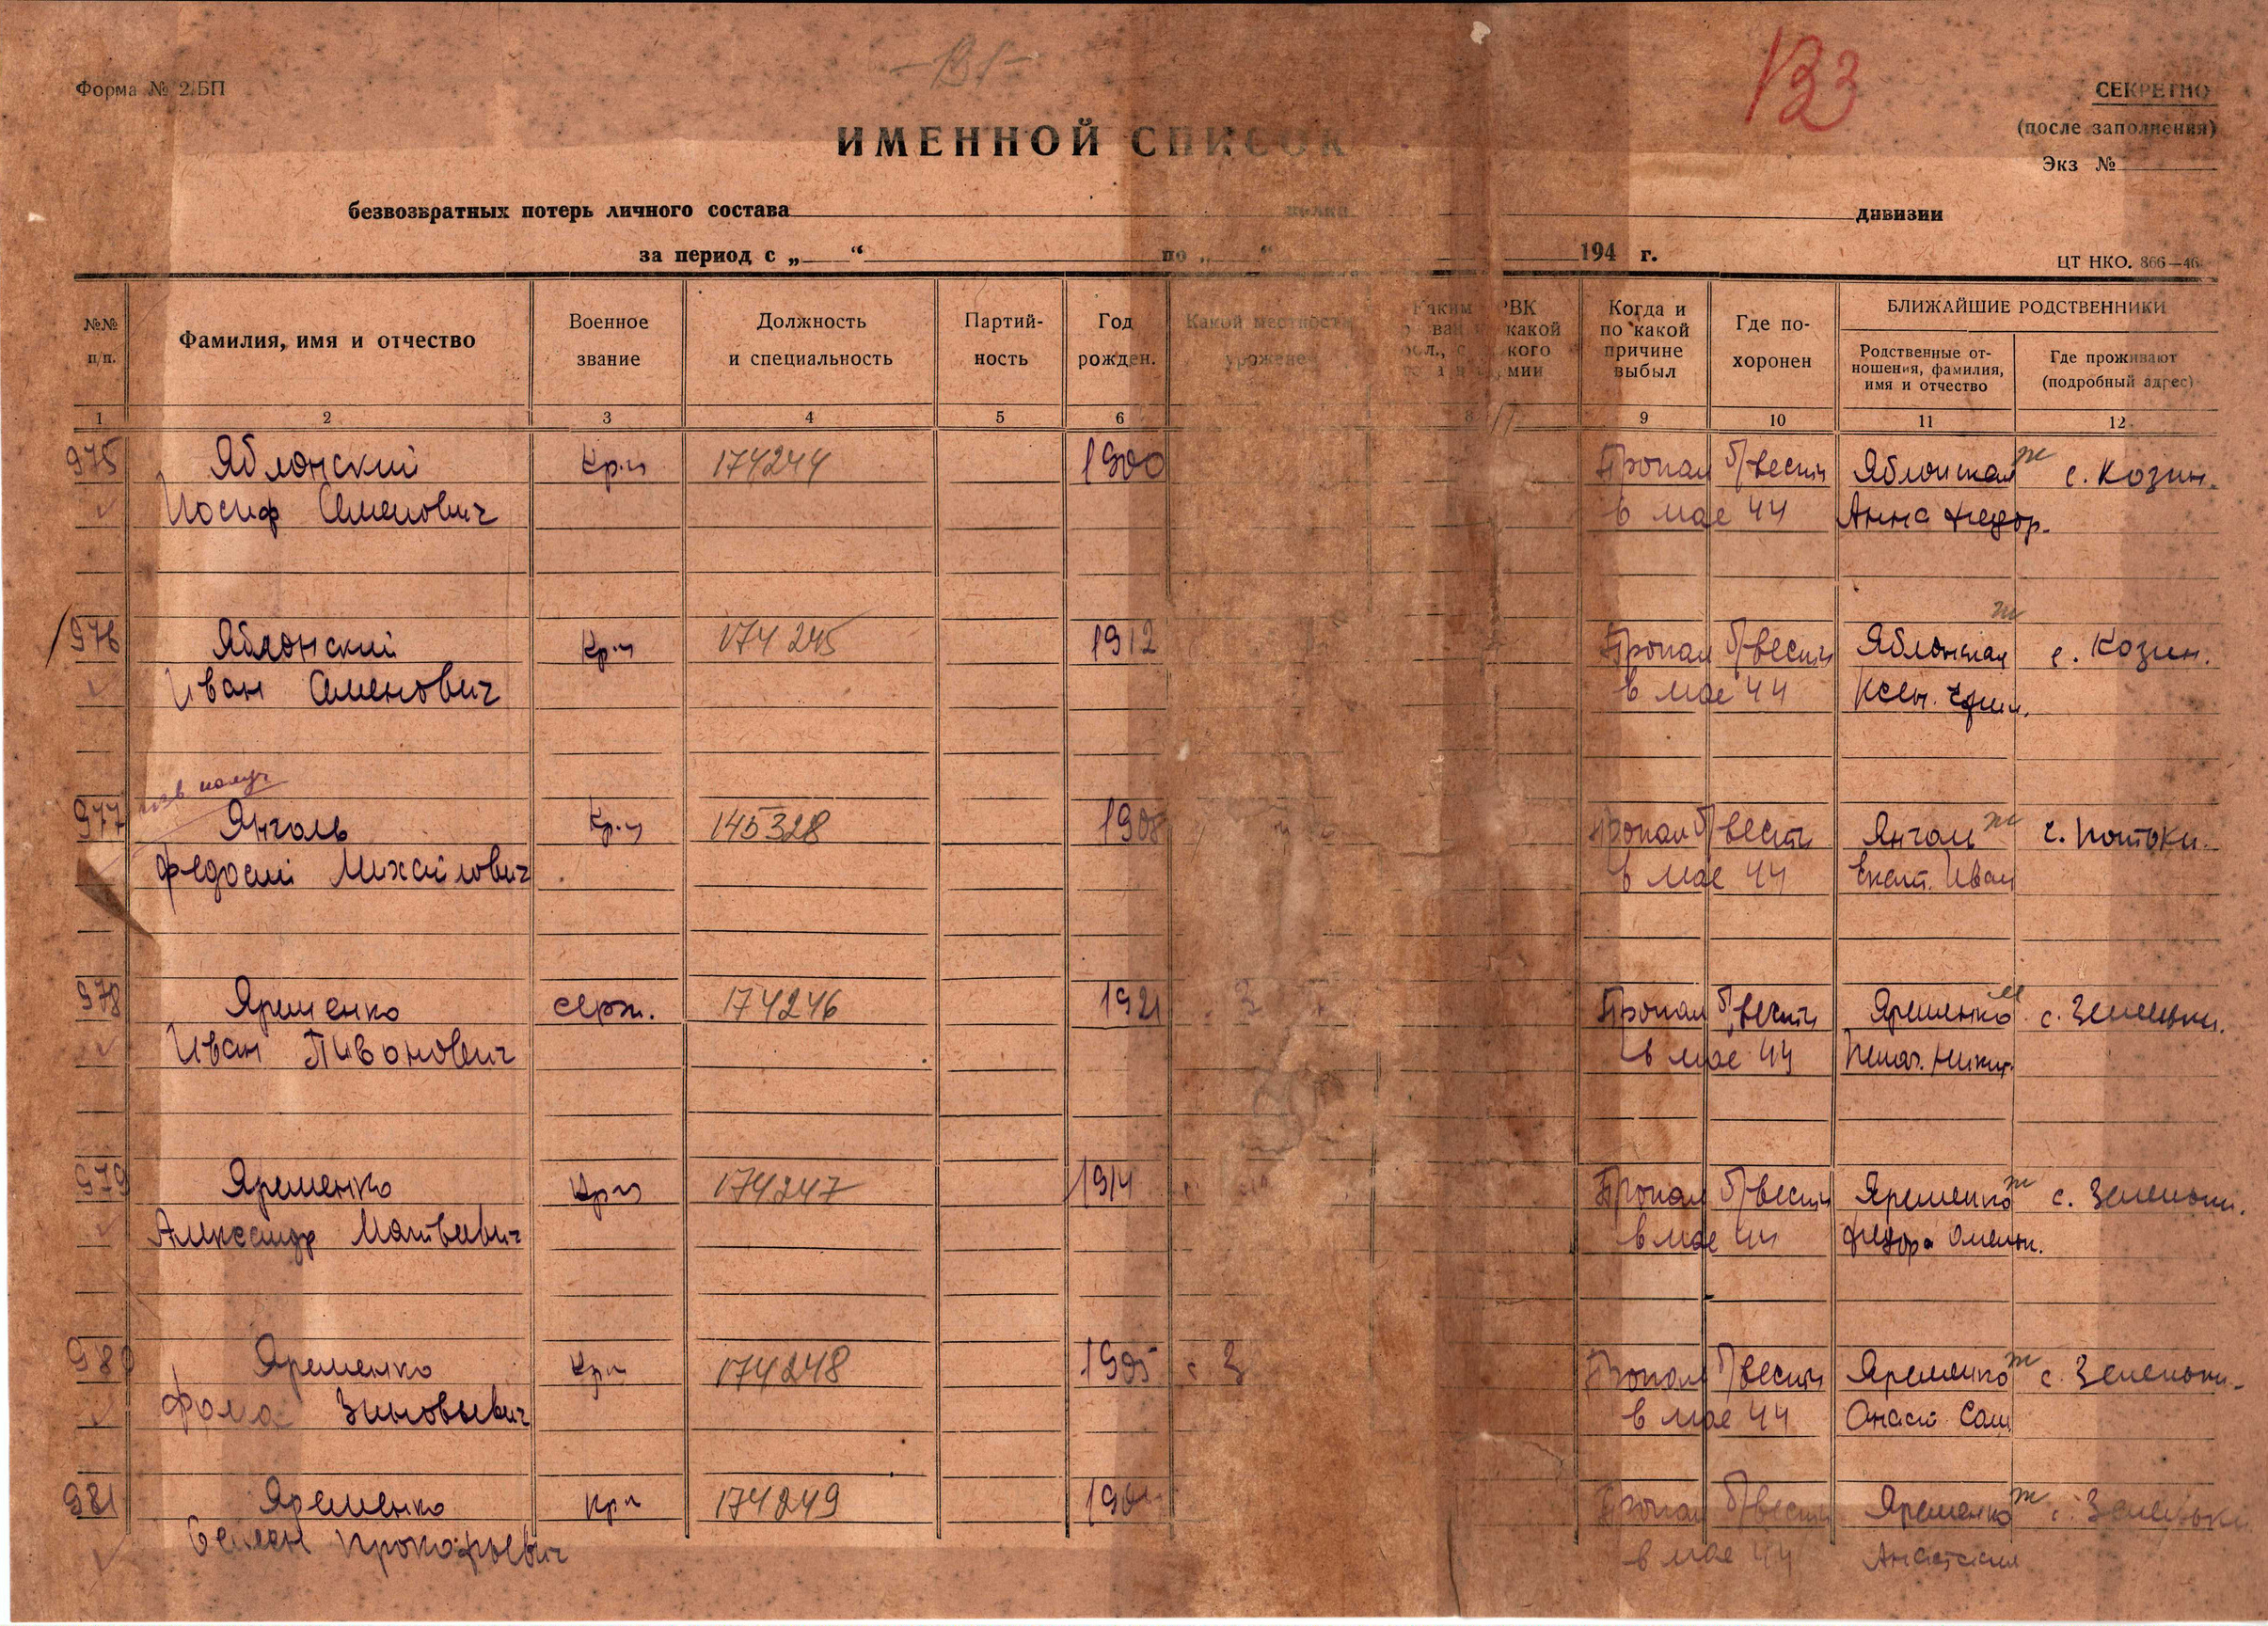 Форма № 2/БП
133
СЕКРЕТНО
(после заполнения)
Экз №
ИМЕННОЙ СПИСОК
безвозвратных потерь личного состава полка дивизии
за период с „ “ по „ “ 194 г.
ЦТ НКО. 866—46
№№ п/п.
Фамилия, имя и отчество
Военное звание
Должность и специальность
Партийность
Год рожден.
Какой местности уроженец
Каким РВК
Когда и по какой причине выбыл
Где похоронен
БЛИЖАЙШИЕ РОДСТВЕННИКИ
Родственные отношения, фамилия, имя и отчество
Где проживают (подробный адрес)
1 2 3 4 5 6 8 9 10 11 12
975 Яблонский Кр-ц 174244 1900 Пропал б/вести Яблонская ж с. Козин.
Иосиф Семенович в мае 44 Анна Федор.
976 Яблонский Кр-ц 174245 1912 Пропал б/вести Яблонская ж с. Козин.
Иван Семенович в мае 44 Ксен. Ефим.
изв получ
977 Янголь Кр-ц 145328 1908 Пропал б/вести Янголь ж с. Потоки.
Федосий Михайлович в мае 44 Екат. Иван
978 Яременко серж. 174246 1921 Пропал б/вести Яременко м с. Зеленьки.
Иван Пивонович в мае 44 Пелаг. Никит.
979 Яременко Кр-ц 174247 1914 Пропал б/вести Яременко ж с. Зеленьки.
Александр Матвеевич в мае 44 Федора Омельк.
980 Яременко Кр-ц 174248 1905 с З Пропал б/вести Яременко ж с. Зеленьки.
Фома Зиновьевич в мае 44
981 Яременко Кр-ц 174249 Пропал б/вести Яременко ж с. Зеленьки
Семен Прокофьевич в мае 44 Анастасия